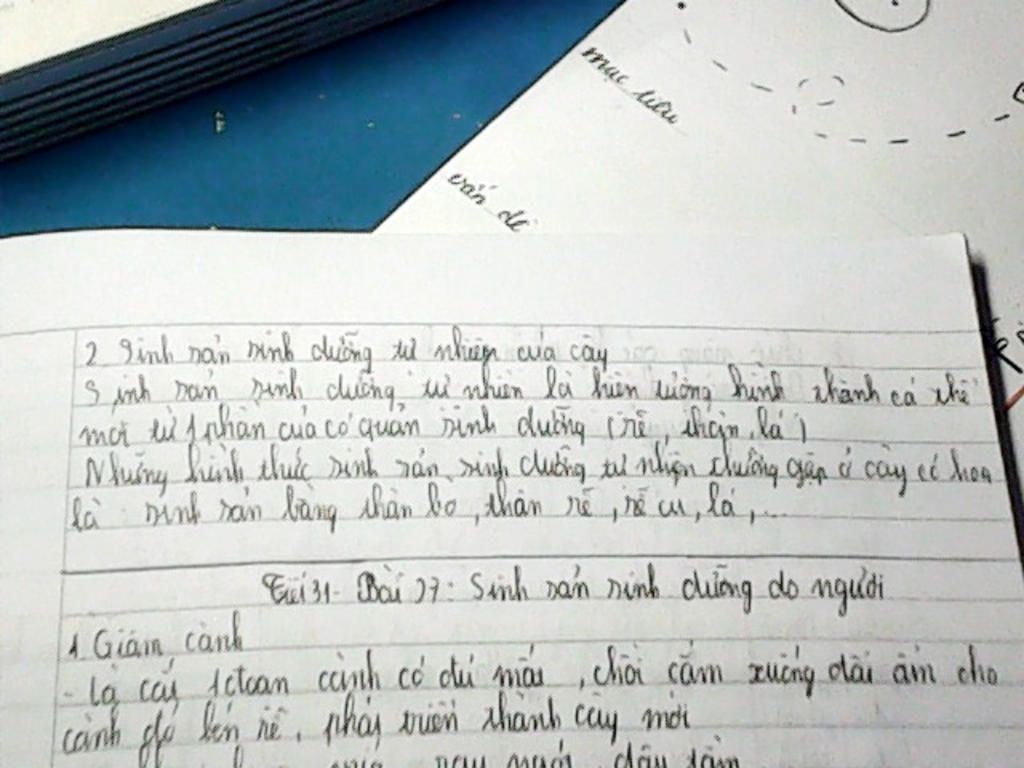 mục tiêu
vấn đề
2 Sinh sản sinh dưỡng tự nhiên của cây
Sinh sản sinh dưỡng tự nhiên là hiện tượng hình thành cá thể
mới từ 1 phần của cơ quan sinh dưỡng (rễ, thân, lá)
Những hình thức sinh sản sinh dưỡng tự nhiên thường gặp ở cây có hoa
là sinh sản bằng thân bò, thân rễ, rễ củ, lá, ...
Tiết 31- Bài 27: Sinh sản sinh dưỡng do người
1. Giâm cành
- Là cây 1 đoạn cành có đủ mắt, chồi cắm xuống đất ẩm cho
cành đó bén rễ, phát triển thành cây mới
rau dâu tằm